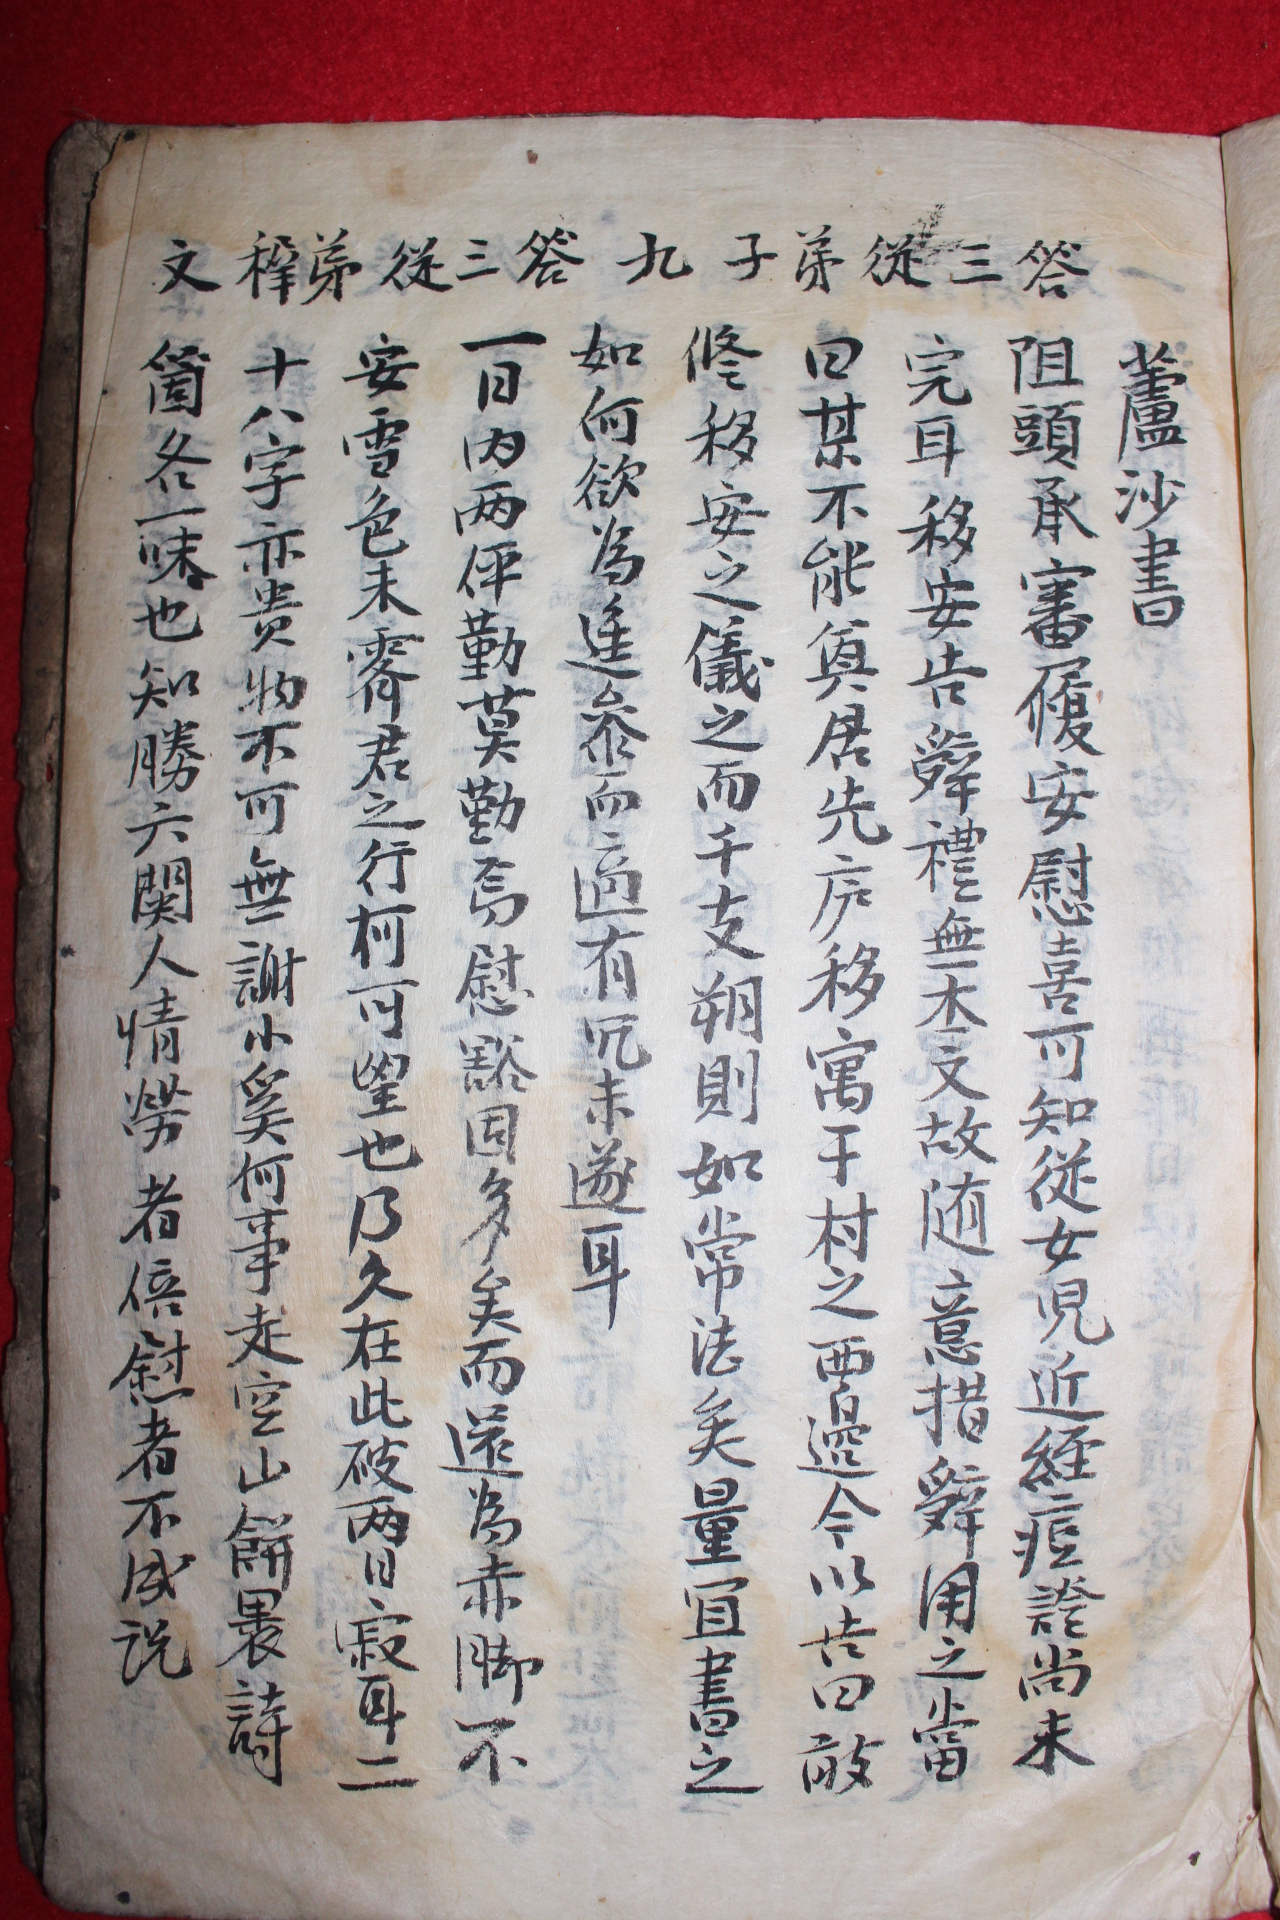 答三從弟子九
答三從弟穉文
蘆沙書
阻頭承審履安慰喜可知從女児近經痘證尚未
完耳移安告辭禮無本文故随意措辭用之當
曰某不能奠居先庐移寓于村之西邊今以吉日敢
修移安之儀之而千支朔則如常法矣量宜書之
如何欲為進參而適有冗未遂耳
一日内两伻勤莫勤焉慰豁固多矣而還為赤脚不
安雪色未霽君之行柯可望也乃久在此破两日寂耳二
十八字亦貴物不可無謝小奚何事走空山餅裹詩
箇各一味也知勝六関人情勞者倍慰者不成说